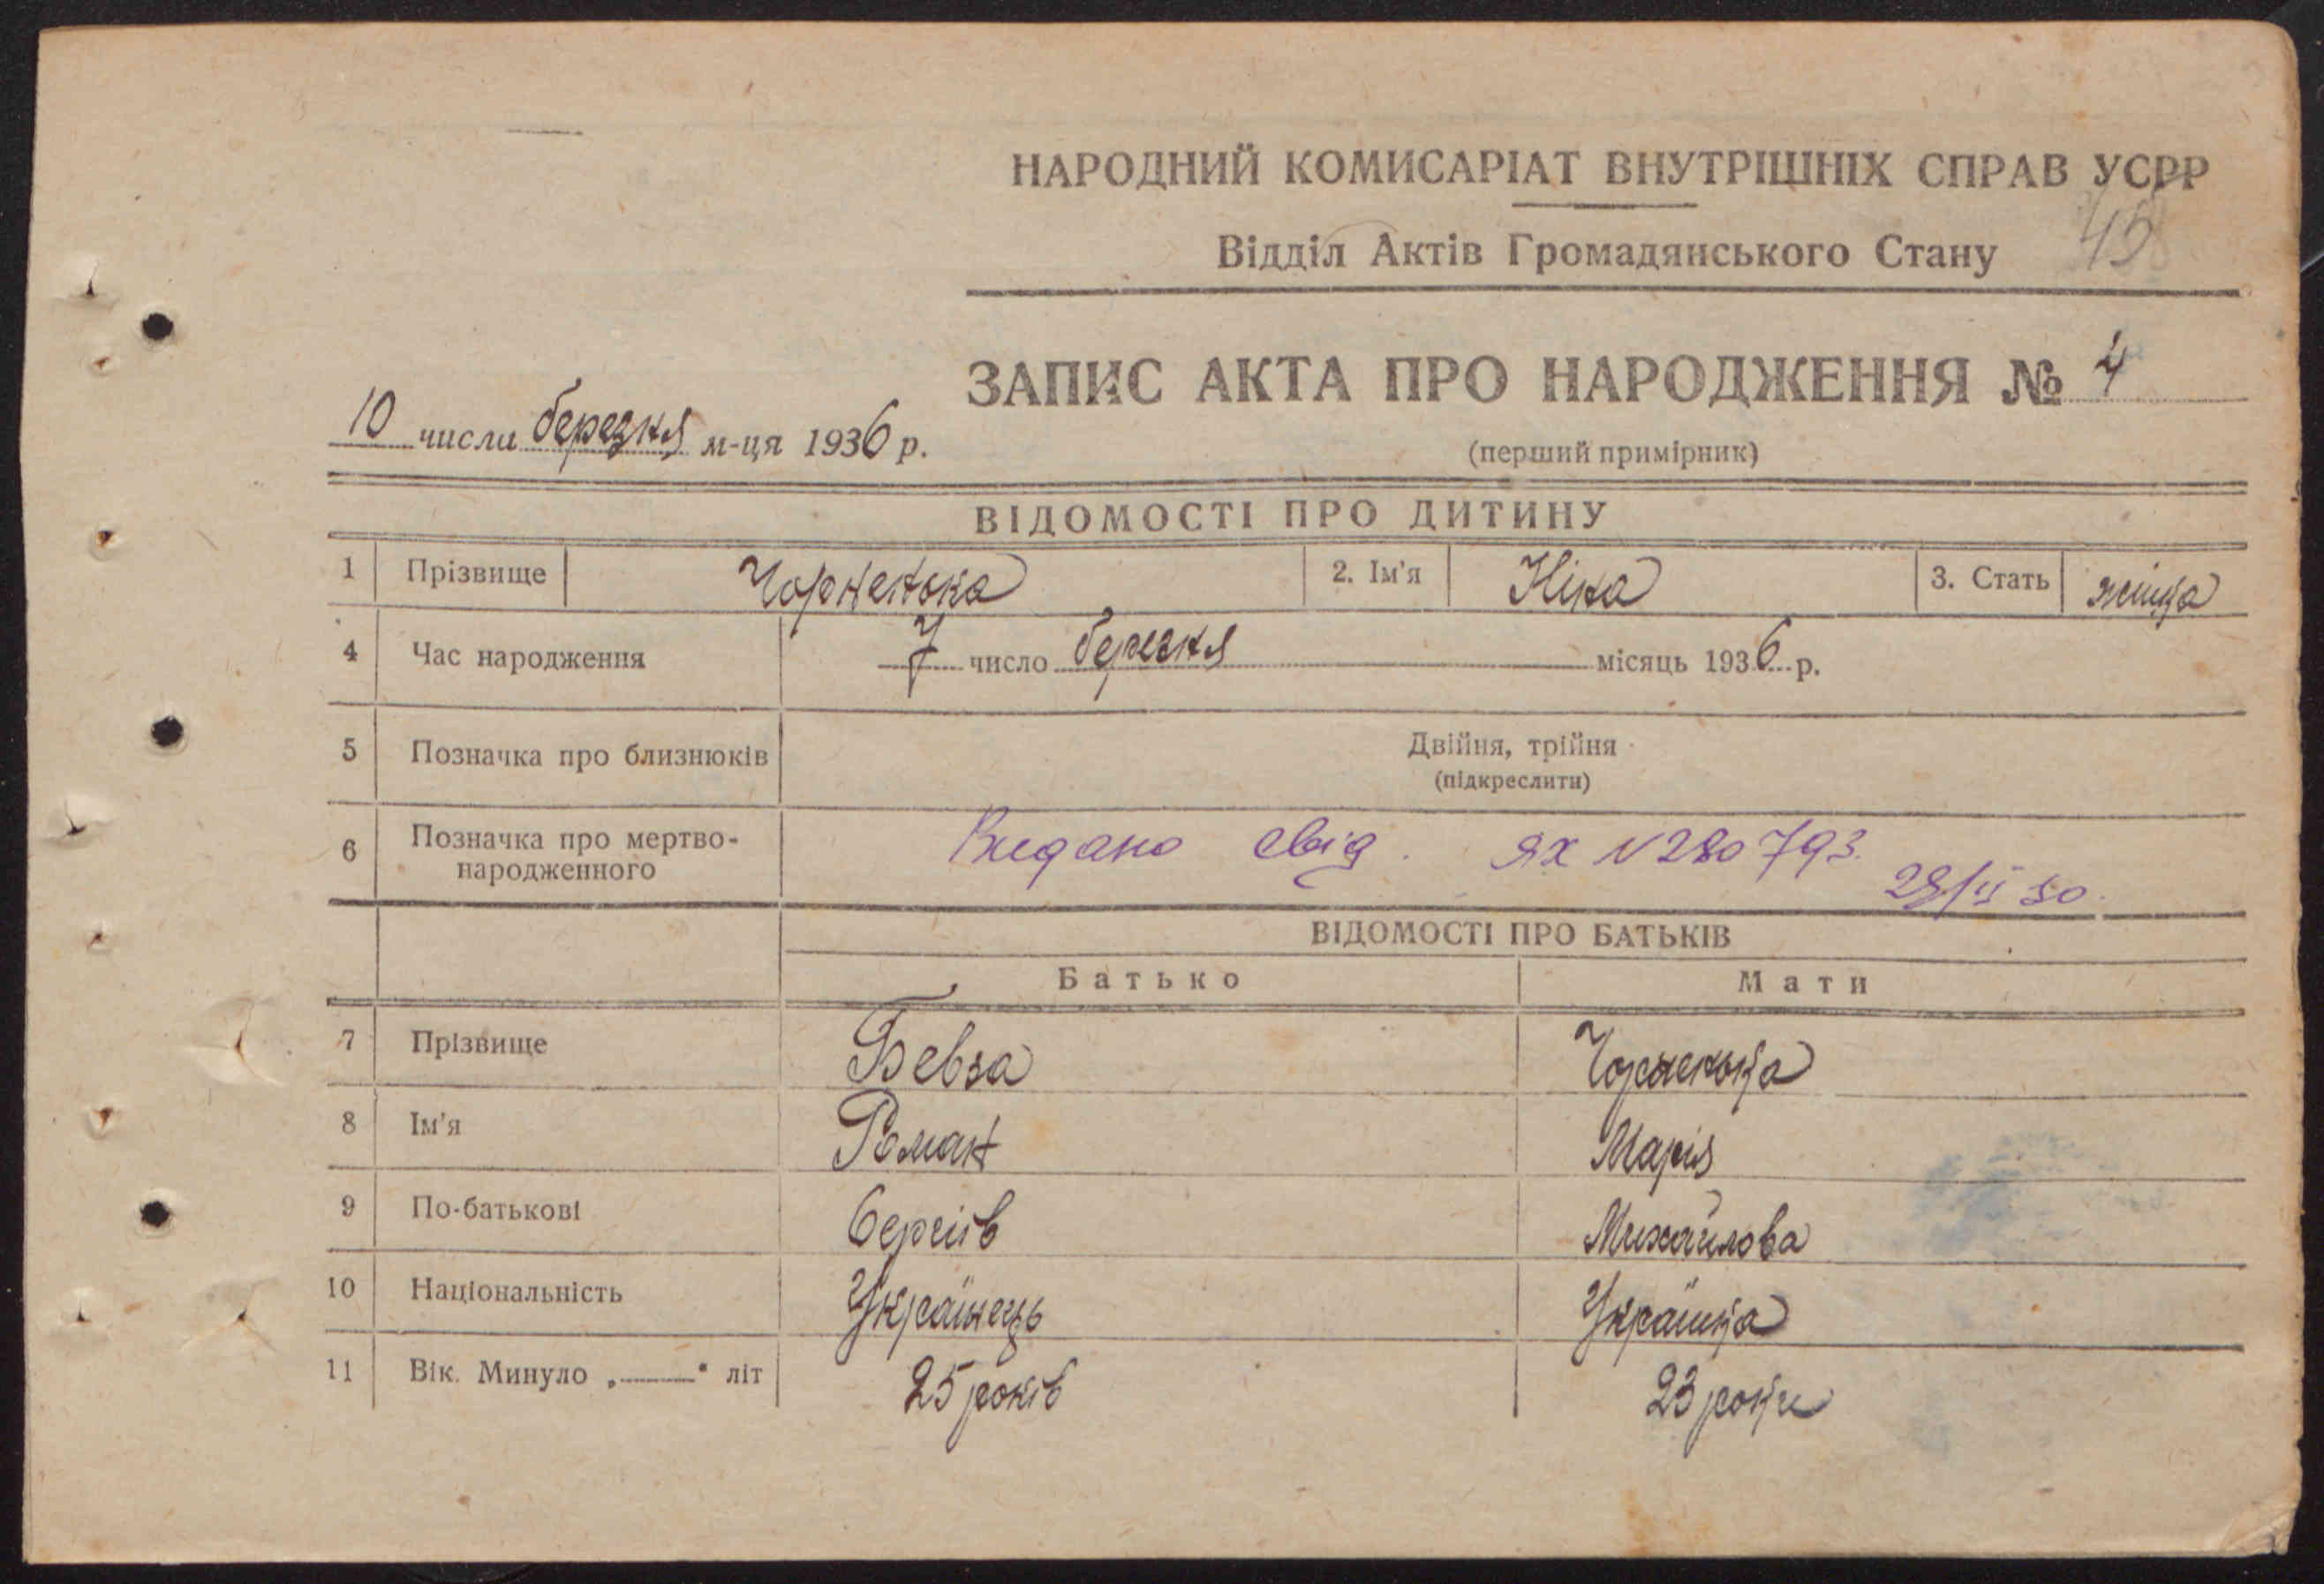 НАРОДНИЙ КОМИСАРІАТ ВНУТРІШНІХ СПРАВ УСРР
45
Відділ Актів Громадянського Стану
ЗАПИС АКТА ПРО НАРОДЖЕННЯ № 4
10 числа березня м-ця 1936 р.
(перший примірник)
ВІДОМОСТІ ПРО ДИТИНУ
1 Прізвище Чорненька 2. Ім'я Ніна 3. Стать жінка
4 Час народження 7 число березня місяць 1936 р.
5 Позначка про близнюків Двійня, трійня
(підкреслити)
6 Позначка про мертво-
народженного
Видано свід. ЯХ N 280793.
28/II 50.
ВІДОМОСТІ ПРО БАТЬКІВ
Батько Мати
7 Прізвище Бевза Чорненька
8 Ім'я Роман Марія
9 По-батькові Сергіїв Михайлова
10 Національність Українець Українка
11 Вік. Минуло „—" літ 25 років 23 роки